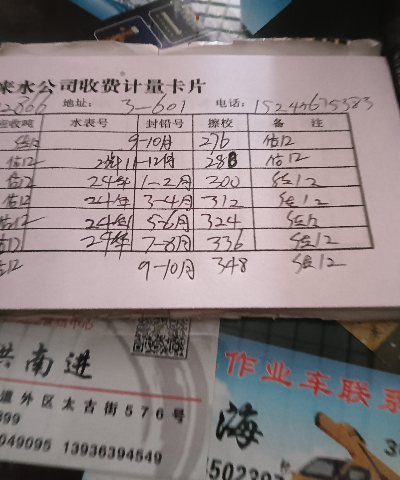 来水公司收费计量卡片
12866 地址: 3-601 电话: 15245675383
应收吨 水表号 封铅号 擦校 备 注
估12 9-10月 276 估12
估12 11-12月 288 估12
估12 24年 1-2月 300 估12
估12 24年 3-4月 312 估12
估12 24年 5-6月 324 估12
估12 24年 7-8月 336 估12
估12 9-10月 348 估12
洪南进
道外区太古街576号
899
049095 13936394549
作业车联系
海